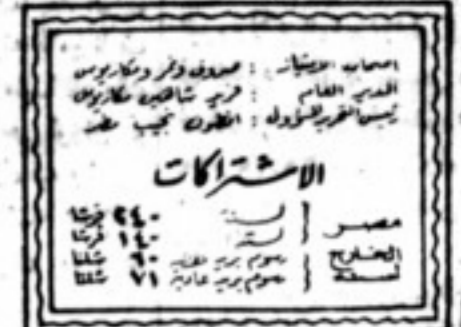 اصحاب الامتياز : صروف ونمر ومكاريوس
المدير العام : فريد شاهين مكاريوس
رئيس التحرير المسؤول : انطون نجيب مطر
الاشتراكات
مصر لسنة ٢٤٠ قرشا
١٤٠ قرشا
الخارج رسوم بريد ٩٠ شلنا
لسنة رسوم بريد عادية ٧١ شلنا